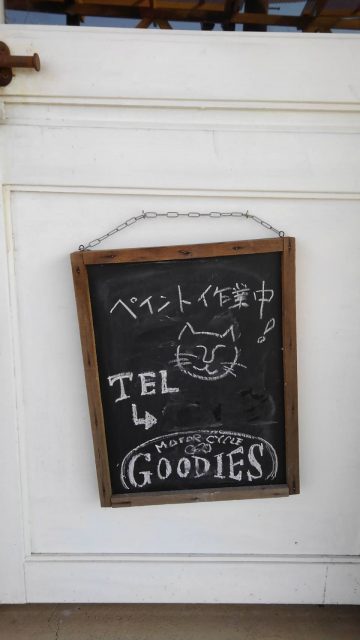 ペイント作業中!
TEL
MOTORCYCLE
GOODIES